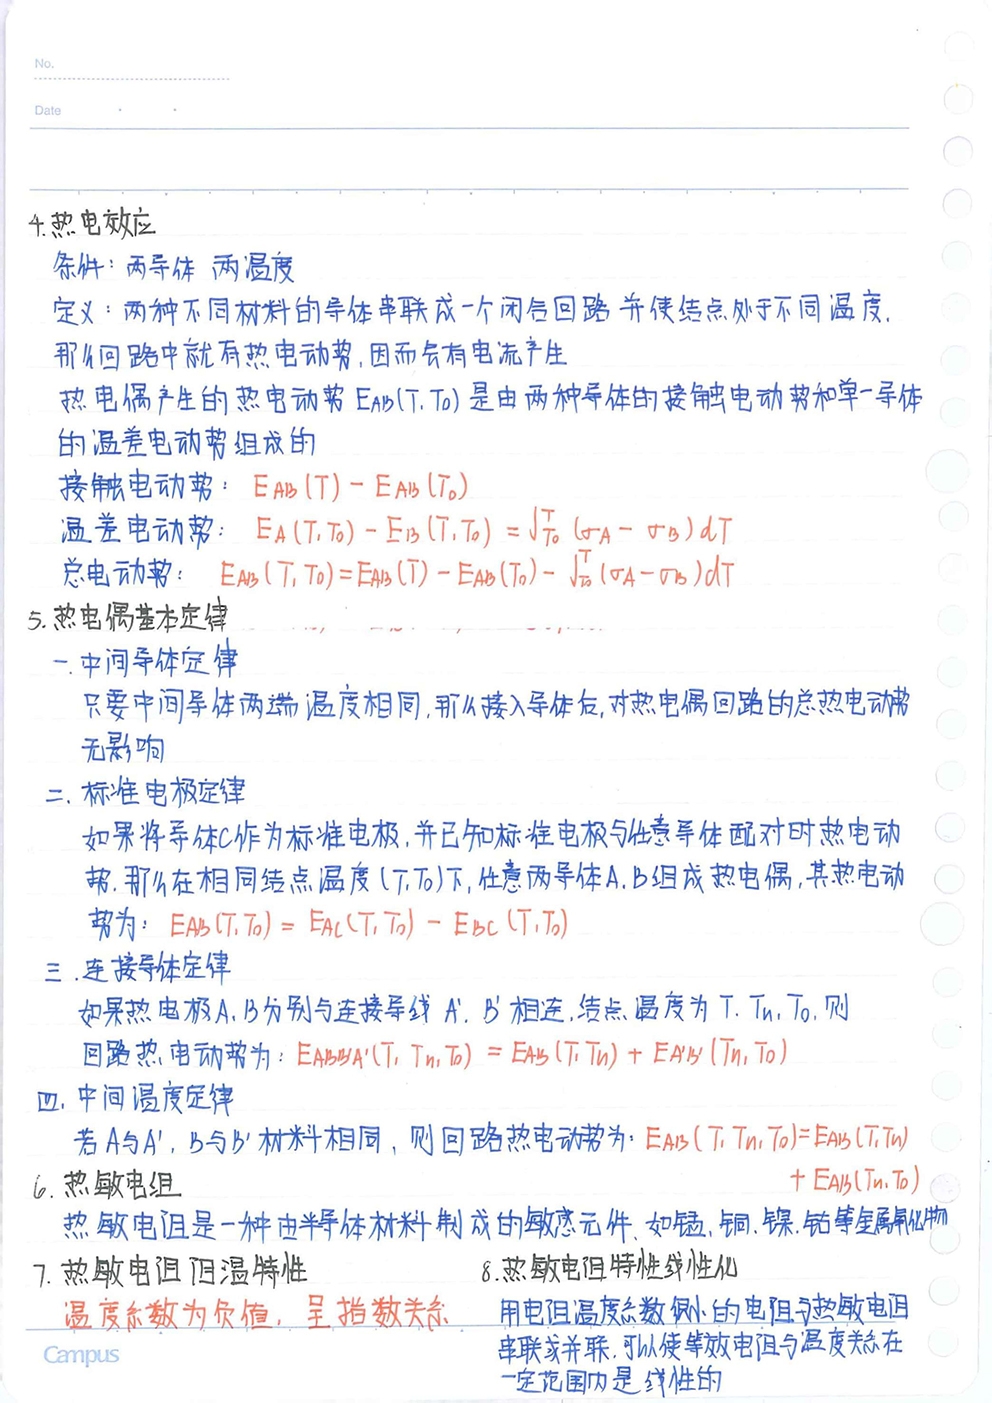 No.
Date
4.热电效应
条件：两导体 两温度
定义：两种不同材料的导体串联成一个闭合回路 并使结点处于不同温度,
那么回路中就有热电动势,因而会有电流产生
热电偶产生的热电动势 EAB(T,T₀)是由两种导体的接触电动势和单一导体
的温差电动势组成的
接触电动势： EAB(T) - EAB(T₀)
温差电动势： EA(T,T₀) - EB(T,T₀) = ∫T₀ᵀ (σA - σB)dT
总电动势： EAB(T,T₀)=EAB(T) - EAB(T₀) - ∫T₀ᵀ(σA-σB)dT
5.热电偶基本定律
一.中间导体定律
只要中间导体两端温度相同,那么接入导体后,对热电偶回路的总热电动势
无影响
二.标准电极定律
如果将导体C作为标准电极,并已知标准电极与任意导体配对时热电动
势,那么在相同结点温度(T,T₀)下,任意两导体A,B组成热电偶,其热电动
势为： EAB(T,T₀) = EAC(T,T₀) - EBC(T,T₀)
三.连接导体定律
如果热电极A,B分别与连接导线 A', B'相连,结点温度为T, Tn, T₀, 则
回路热电动势为：EABB'A'(T, Tn,T₀) = EAB(T,Tn) + EA'B'(Tn,T₀)
四.中间温度定律
若A与A', B与B'材料相同, 则回路热电动势为：EAB(T,Tn,T₀)=EAB(T,Tn)
+ EAB(Tn,T₀)
6.热敏电组
热敏电阻是一种由半导体材料制成的敏感元件,如锰,铜,镍,钴等金属氧化物
7.热敏电阻阻温特性
温度系数为负值, 呈指数关系
8.热敏电阻特性线性化
用电阻温度系数很小的电阻与热敏电阻
串联或并联,可以使等效电阻与温度关系在
一定范围内是线性的
Campus